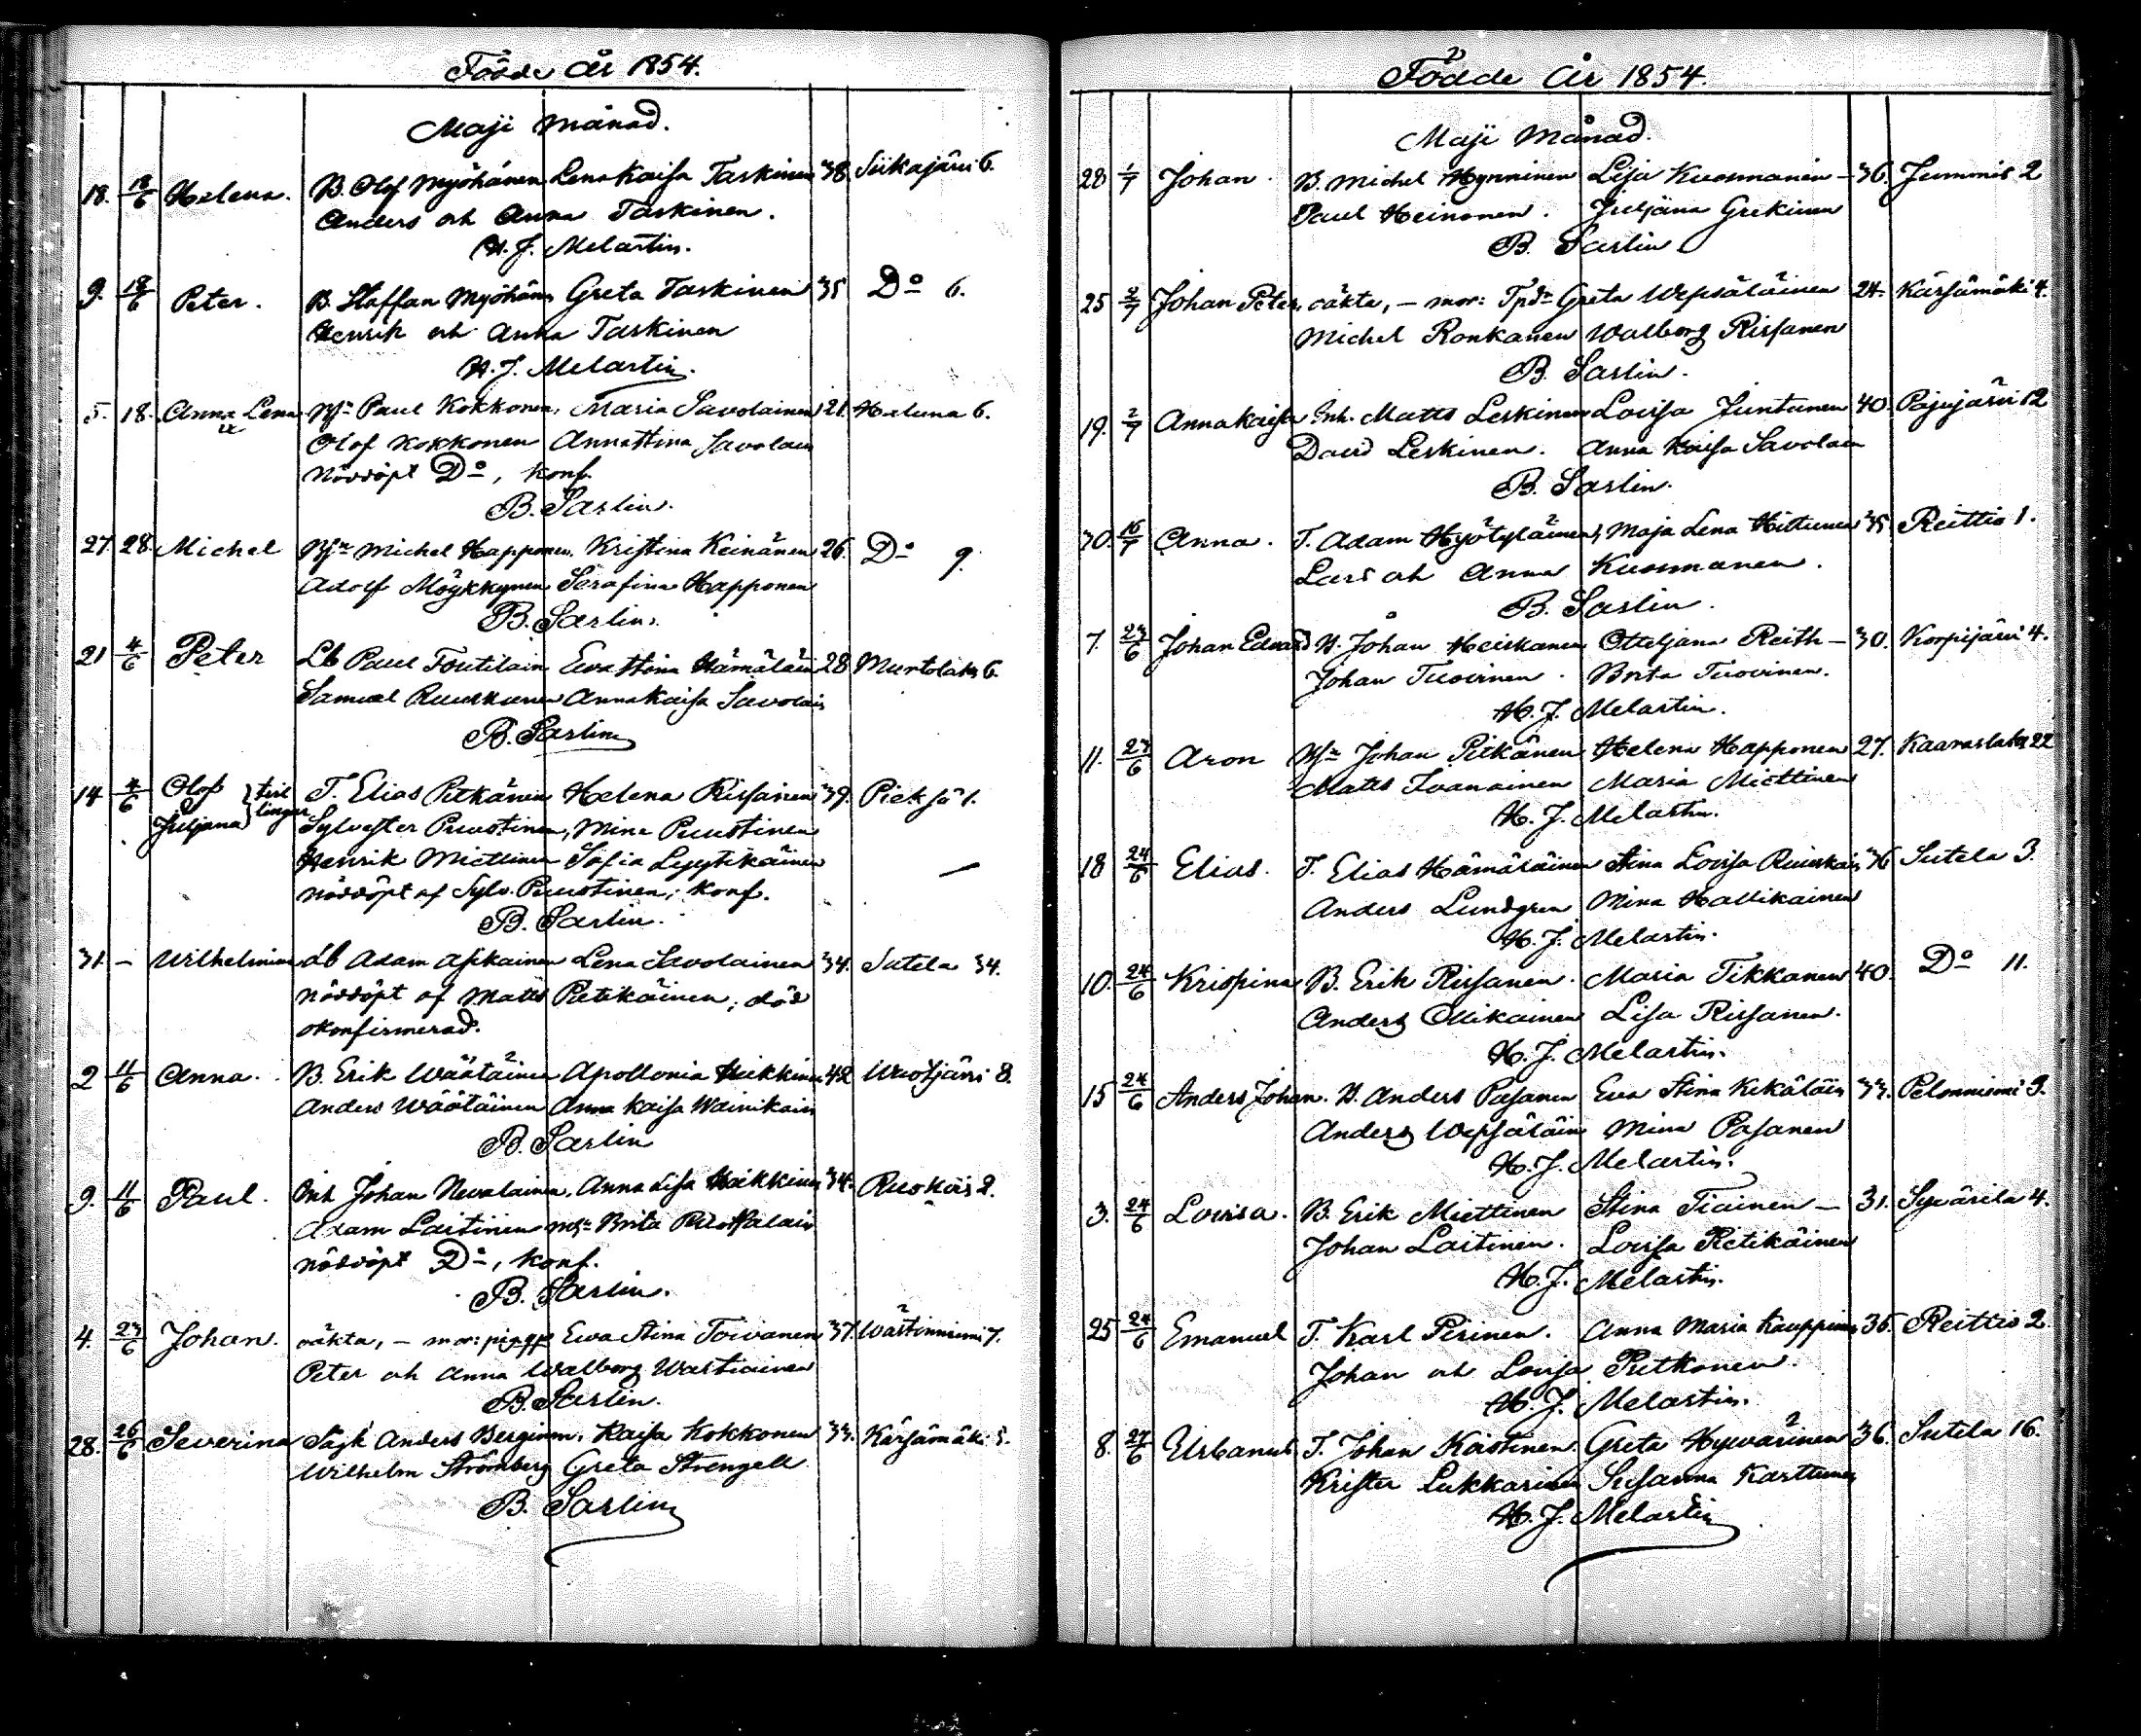 Födde År 1854.
Maji månad.
18. 18/6 Helena. B. Olof Myöhänen Lena Kaisa Taskinen 38. Siikajärvi 6.
Anders och Anna Taskinen.
H. J. Melartin.
9. 18/6 Peter. B. Staffan Myöhänen Greta Taskinen 35 Do 6.
Henrik och Anna Taskinen
H. J. Melartin.
5. 18. Anna Lena Paul Kokkonen, Maria Savolainen 21. Haluna 6.
Olof Kokkonen Anna Stina Savolain
Nöddöpt Do, konf.
B. Sarlin.
27. 28. Michel Michel Happonen, Kristina Keinänen 26. Do 9.
Adolf Möykkynen Serafina Happonen
B. Sarlin.
21 4/6 Peter Lb Paul Toutilain Eva Stina Hämäläin 28 Murtolaks 6.
Samuel Ruuskanen Anna Kaisa Savolain
B. Sarlin
14 4/6 Olof Juljana } tvillingar T. Elias Pitkänen Helena Rissanen 39. Pieksä 1.
Sylvester Puustinen, Mina Puustinen
Henrik Miettinen Sofia Lyytikäinen
nöddöpt af Sylv. Puustinen; konf.
B. Sarlin.
31. – Wilhelmina Lb Adam Asikainen Lena Savolainen 34. Sutela 34.
nöddöpt af Matts Pietikäinen; död
okonfirmerad.
2 11/6 Anna. B. Erik Wäätäinen Apollonia Heikkinen 42 Wuotjärvi 8.
Anders Wäätäinen Anna Kaisa Wainikain
B. Sarlin
9. 11/6 Paul. Inh Johan Nevalainen, Anna Lisa Heikkinen 34. Ruokois 2.
Adam Laitinen Brita
nöddöpt Do, konf.
B. Sarlin.
4. 23/6 Johan. oäkta, – mor: pig Eva Stina Toivanen 37. Wästinniemi 7.
Peter och Anna Walborg Wastiainen
B. Sarlin.
28. 26/6 Severina Anders Berginen, Kaisa Kokkonen 33. Kärsämäki 5.
Wilhelm Strömberg Greta Strengell
B. Sarlin
Födde År 1854.
Maji Månad.
28 1/7 Johan. B. Michel Hynninen Lisa Kuosmanen – 36. Jummis 2
Paul Heinonen. Juljäna Grekinen
B. Sarlin
25 2/7 Johan Peter, oäkta, – mor: Greta Wepsäläinen 24. Kärsämäki 4.
Michel Ronkanen Walborg Rissanen
B. Sarlin.
19. 2/7 Anna Kaisa Inh. Matts Leskinen Lovisa Juntunen 40. Pajujärvi 12
David Leskinen. Anna Kaisa Savolain
B. Sarlin.
30. 16/7 Anna. T. Adam Hyötyläinen, Maja Lena Hittunen 35. Reittio 1.
Lars och Anna Kuosmanen.
B. Sarlin.
7. 23/6 Johan Edvard B. Johan Heiskanen Otteljana Reith – 30. Korpijärvi 4.
Johan Tuovinen. Brita Tuovinen.
H. J. Melartin.
11. 23/6 Aron Johan Pitkänen Helena Happonen 27. Kaaraslaks 22
Matts Ivanainen Maria Miettinen
H. J. Melartin.
18 24/6 Elias. T. Elias Hämäläinen Stina Lovisa Ruuskain 36 Sutela 3.
Anders Lundgren Mina Hallikainen
H. J. Melartin.
10. 24/6 Krispina B. Erik Rissanen. Maria Tikkanen 40. Do 11.
Anders Ollikainen Lisa Rissanen.
H. J. Melartin.
15 24/6 Anders Johan. B. Anders Pasanen Eva Stina Kekäläin 33. Pelonniemi 9.
Anders Wepsäläin Mina Pasanen
H. J. Melartin.
3. 24/6 Lovisa. B. Erik Miettinen Stina Tiainen – 31. Syvärila 4.
Johan Laitinen. Lovisa Pietikäinen
H. J. Melartin.
25 24/6 Emanuel T. Karl Pirinen. Anna Maria Kauppinen 36. Reittio 2.
Johan och Lovisa Pitkonen.
H. J. Melartin.
8. 27/6 Urbanus. T. Johan Koistinen. Greta Hyvärinen 36. Sutela 16.
Krister Lukkarinen Susanna Karttunen
H. J. Melartin